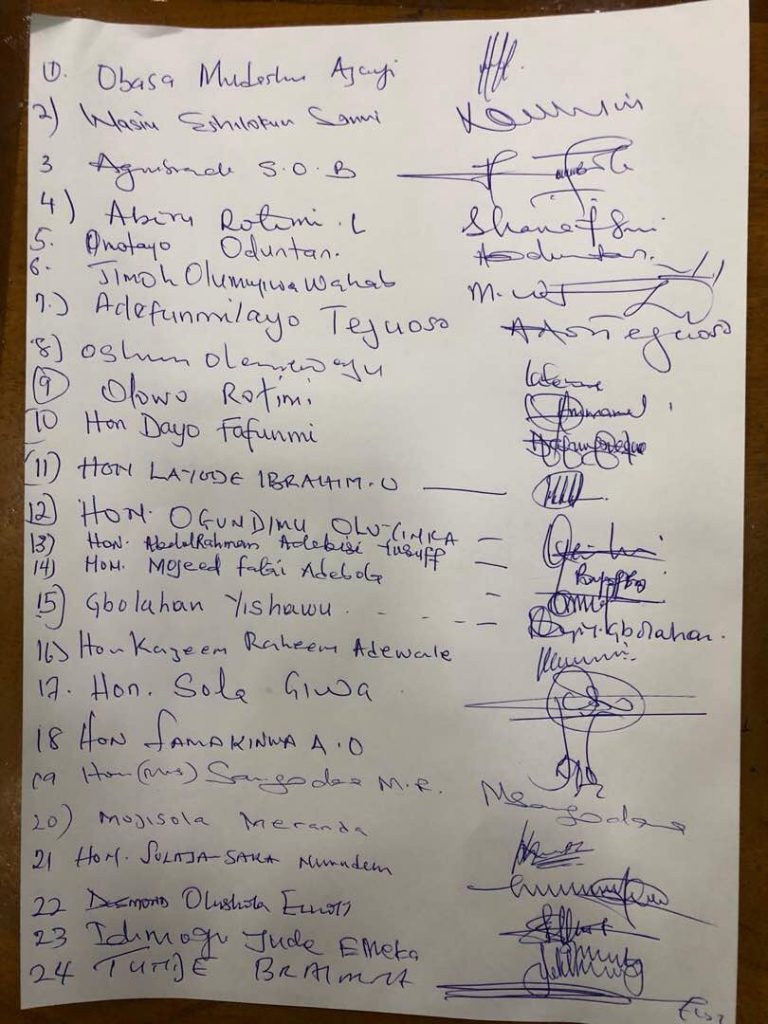 1). Obasa Mudashiru Ajayi
2) Wasiu Eshilokun Sanni
3 Agunbiade S.O.B
4) Abiru Rotimi. L Shanafi Sni
5. Omotayo Oduntan. Aoduntan.
6. Jimoh Olumuyiwa Wahab M. Waj
7.) Adefunmilayo Tejuoso Tejuoso
8) Oshun Olanrewaju
9 Olowo Rotimi
10 Hon Dayo Fafunmi
11) HON LAYODE IBRAHIM.O
12) HON. OGUNDIMU OLU-YINKA
13) Hon. AbdulRahman Adebisi Yusuff
14) Hon. Mojeed Fatai Adebola
15) Gbolahan Yishawu Gbolahan.
16) Hon Kazeem Raheem Adewale
17. Hon. Sola Giwa
18 HON FAMAKINWA A.O
19 Hon (Mrs) Sangodara M.R. Msangodara
20) Mojisola Meranda
21 Hon. SULAJA-SAKA Nurudeen
22 Desmond Olushola Elliott
23 Idimogu Jude Emeka
24 TUNDE BRAIMOH